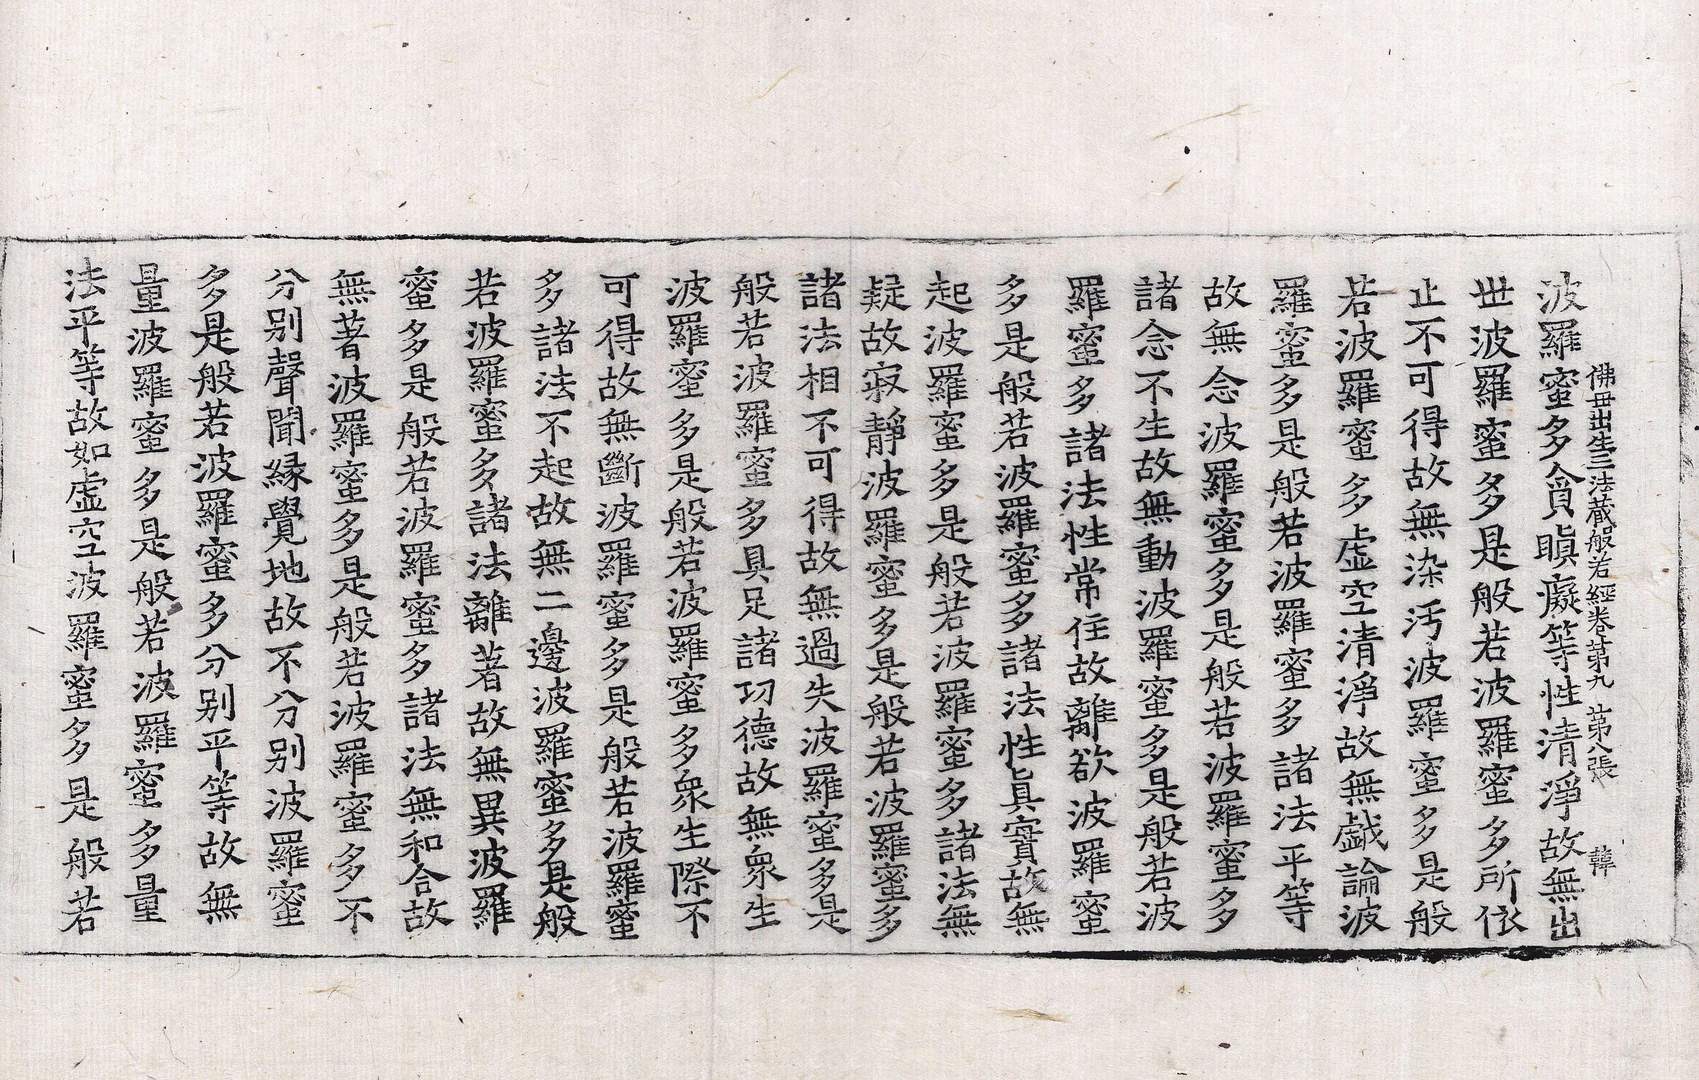 佛母出生三法藏般若經卷第九　第八張　韓
波羅蜜多貪瞋癡等性清淨故無出
世波羅蜜多是般若波羅蜜多所依
止不可得故無染汚波羅蜜多是般
若波羅蜜多虛空清淨故無戱論波
羅蜜多是般若波羅蜜多諸法平等
故無念波羅蜜多是般若波羅蜜多
諸念不生故無動波羅蜜多是般若波
羅蜜多諸法性常住故離欲波羅蜜
多是般若波羅蜜多諸法性眞實故無
起波羅蜜多是般若波羅蜜多諸法無
疑故寂靜波羅蜜多是般若波羅蜜多
諸法相不可得故無過失波羅蜜多是
般若波羅蜜多具足諸功德故無衆生
波羅蜜多是般若波羅蜜多衆生際不
可得故無斷波羅蜜多是般若波羅蜜
多諸法不起故無二邊波羅蜜多是般
若波羅蜜多諸法離著故無異波羅
蜜多是般若波羅蜜多諸法無和合故
無著波羅蜜多是般若波羅蜜多不
分別聲聞緣覺地故不分別波羅蜜
多是般若波羅蜜多分別平等故無
量波羅蜜多是般若波羅蜜多量
法平等故如虛空波羅蜜多是般若